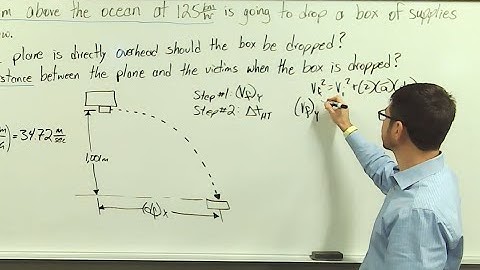 m above the ocean at 125 km/hr is going to drop a box of supplies
plane is directly overhead should the box be dropped?
stance between the plane and the victims when the box is dropped?
Step #1: (Vf)y
Step #2: Δt
Vf² = Vi² + (2)(a)(
(Vf)y
) = 34.72 m/sec
1,001m
(dp)x